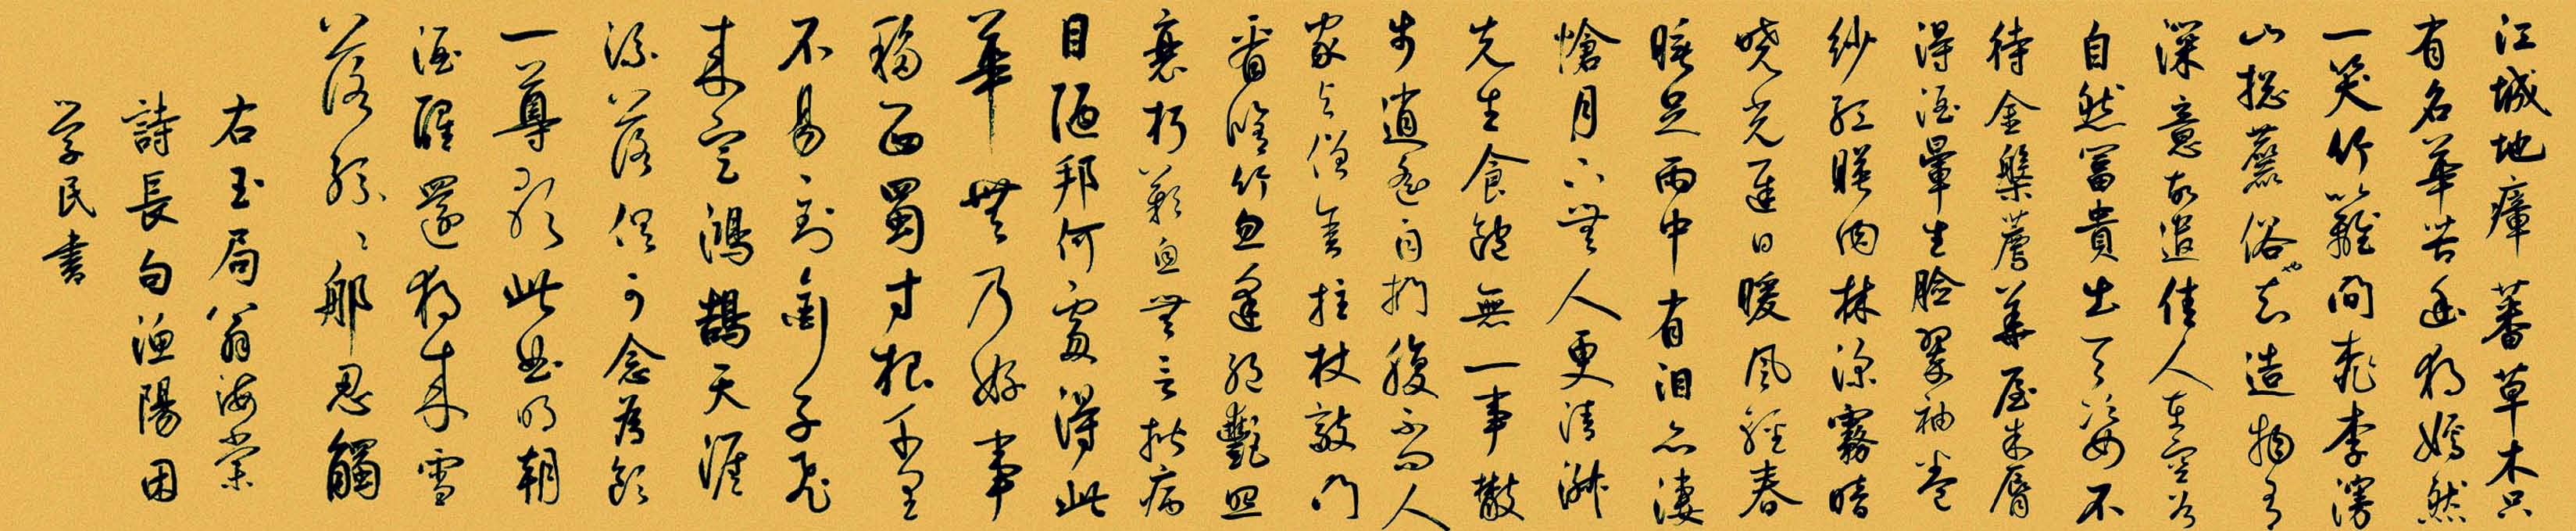 江城地瘴蕃草木只
有名華苦幽獨嫣然
一笑竹籬間桃李漫
山總麤俗也知造物有
深意故遣佳人在空谷
自然富貴出天姿不
待金盤薦華屋朱脣
得酒暈生臉翠袖卷
紗紅映肉林深霧暗
曉光遲日暖風輕春
睡足雨中有泪亦淒
愴月下無人更清淑
先生食飽無一事散
步逍遙自捫腹不問人
家與僧舍拄杖敲門
看脩竹忽逢絕艷照
衰朽歎息無言揩病
目陋邦何處得此
華無乃好事
移西蜀寸根千里
不易到銜子飛
來定鴻鵠天涯
流落俱可念為飲
一尊歌此曲明朝
酒醒還獨來雪
落紛紛那忍觸
右玉局翁海棠
詩長句漁陽困
學民書